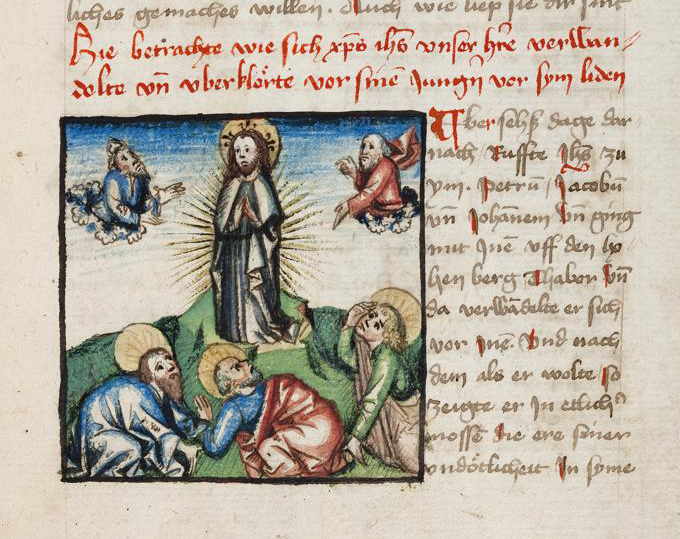 liches gemaches willen. Auch wie liep sie dir sint
Hie betrachte wie sich xp̄s ih̄s vnser h̄re verwan⸗
delte vn̄ vberklörte vor sinē Jungn̄ vor sym liden
Uber sehß dage dar
nach Ruffte Jh̄s zu
ym. Petrū Jacobū
vn̄ Johānem vn̄ ging
mit Jnē vff den ho
hen berg Thabor vn̄
da verwādelte er sich
vor Jnē. Vnd nach
dem als er wolte so
zeigte er Jn etlich᷒
mosse die ere siner
vndötlicheit Jn syme